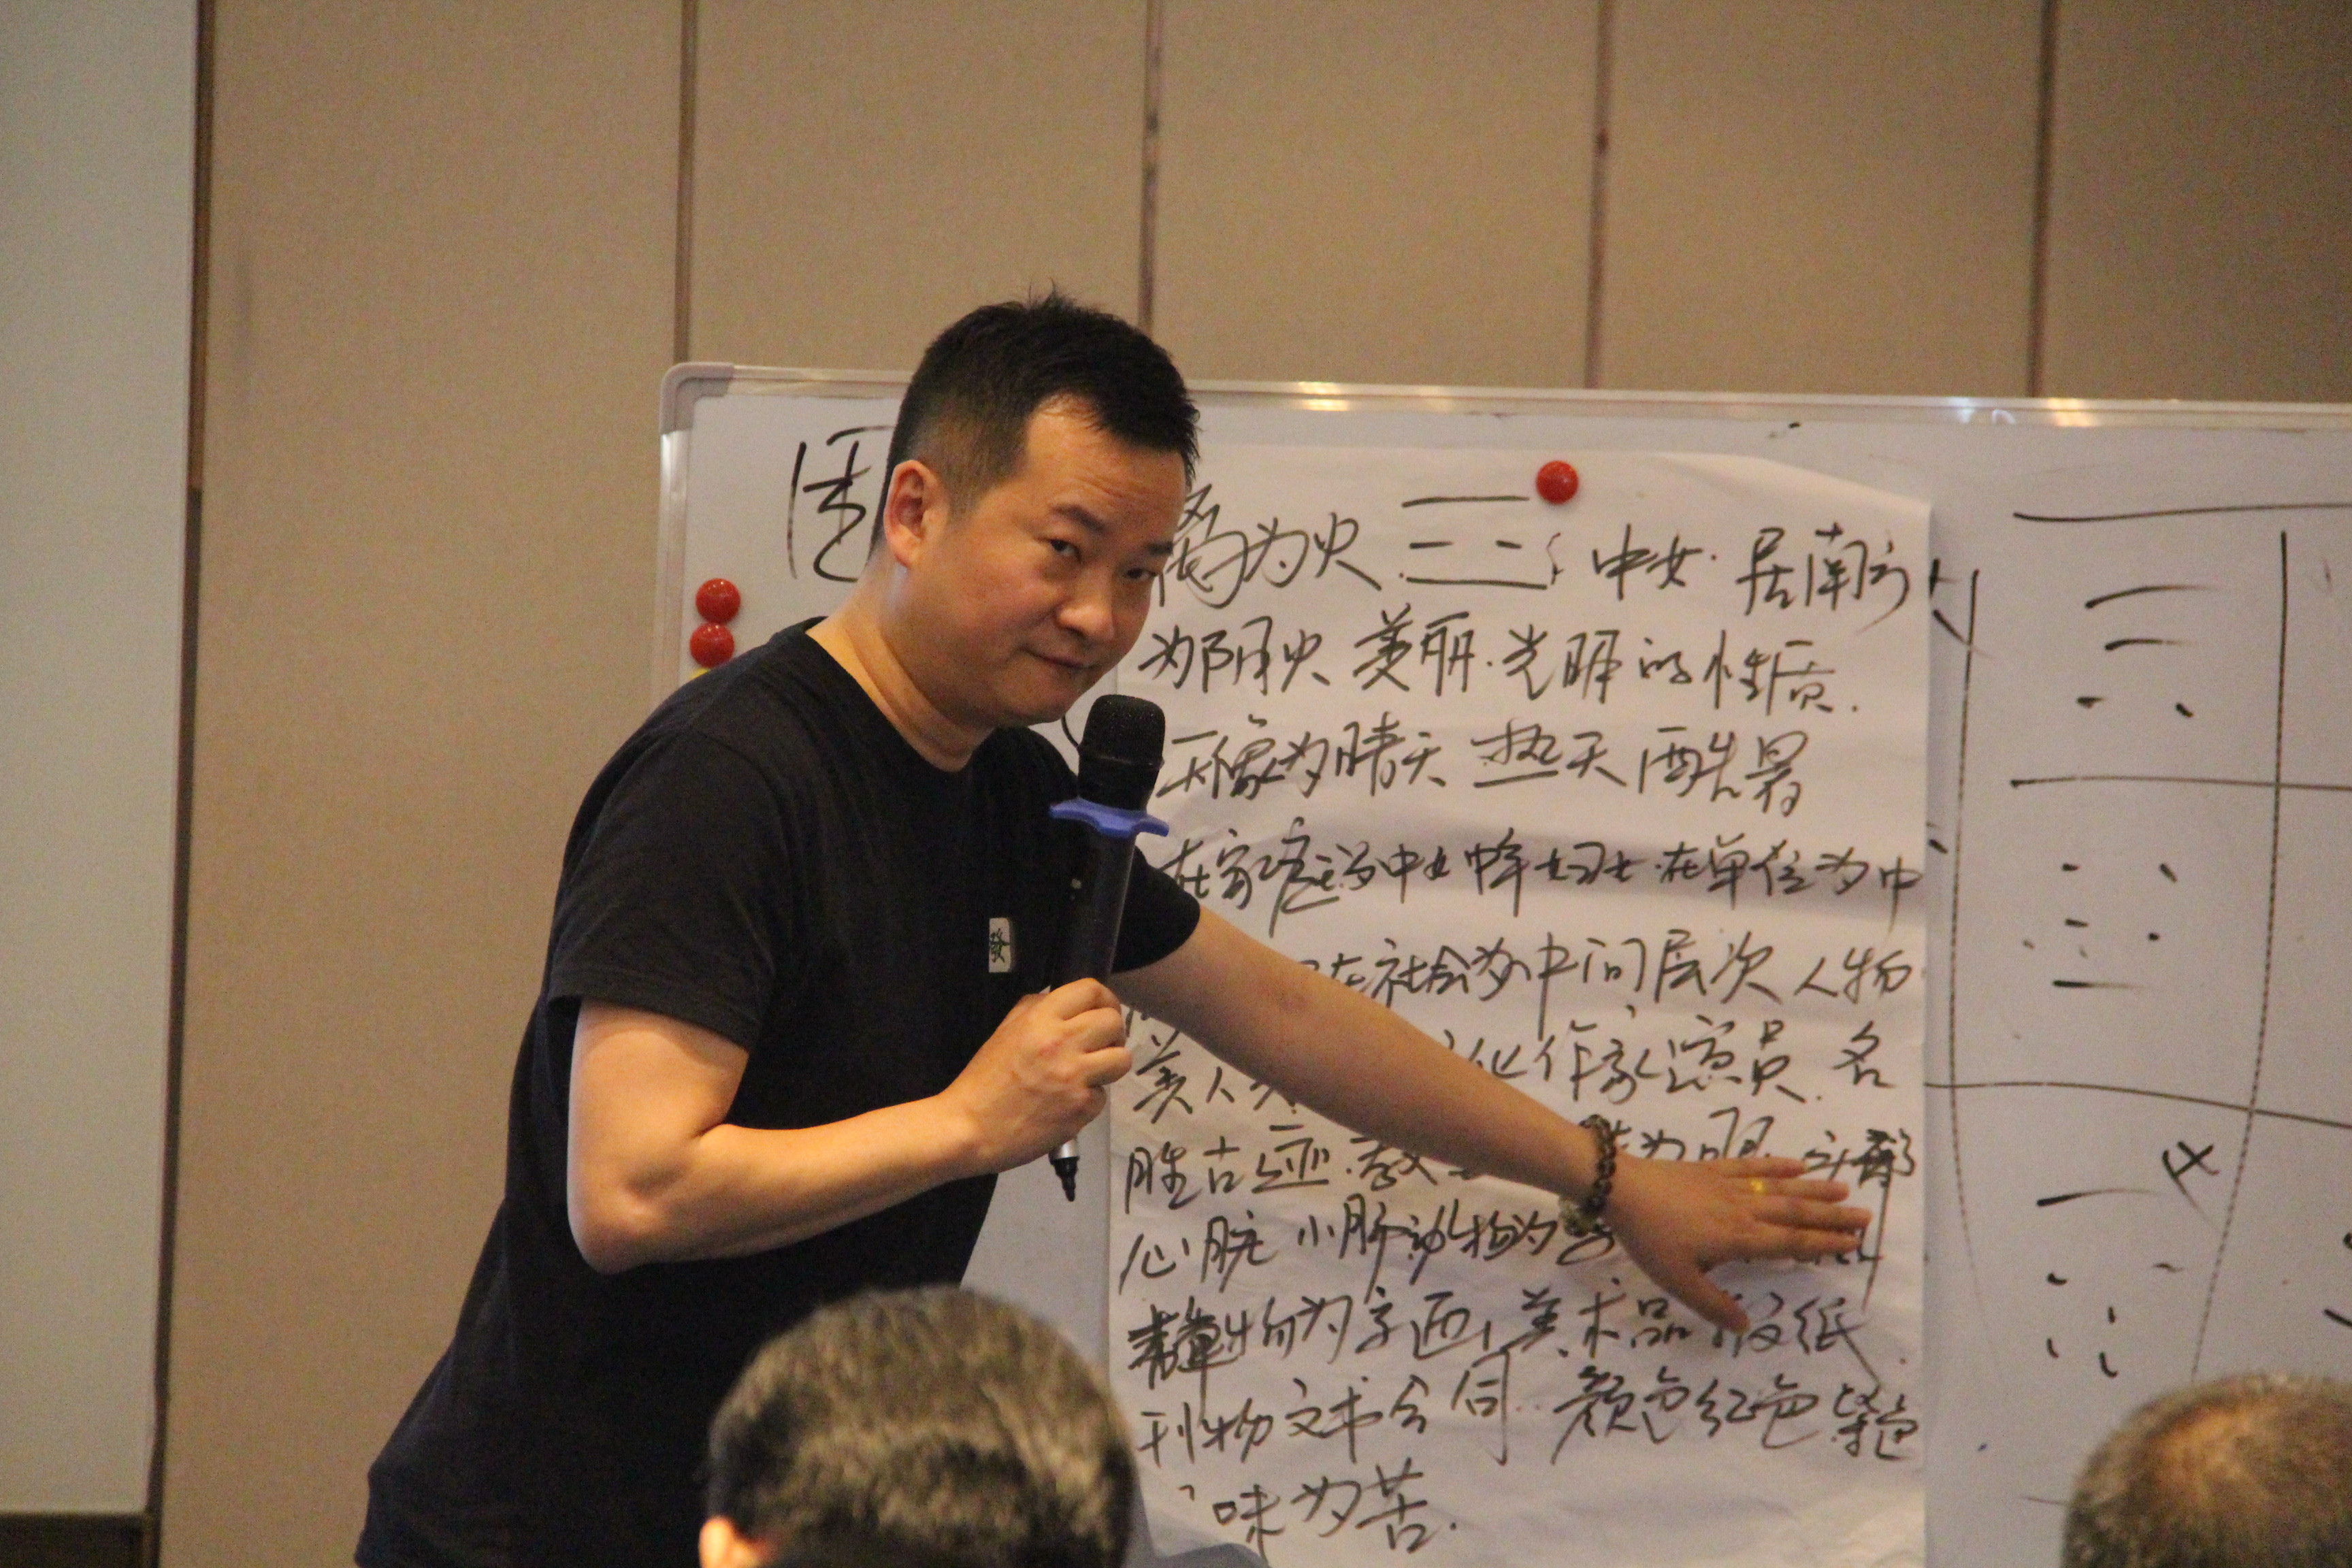 周
离为火 三 中女·居南方
为阴火 美丽·光明的性质.
天象为晴天 热天 酷暑
在家庭为中女 中年妇女·在单位为中
在社会为中间层次人物
美人 作家演员.名
胜古迹.教 为眼 头部
心脏 小肠 动物为
静物为字画,美术品 报纸.
刊物文书合同.颜色红色 紫色
味为苦.
發